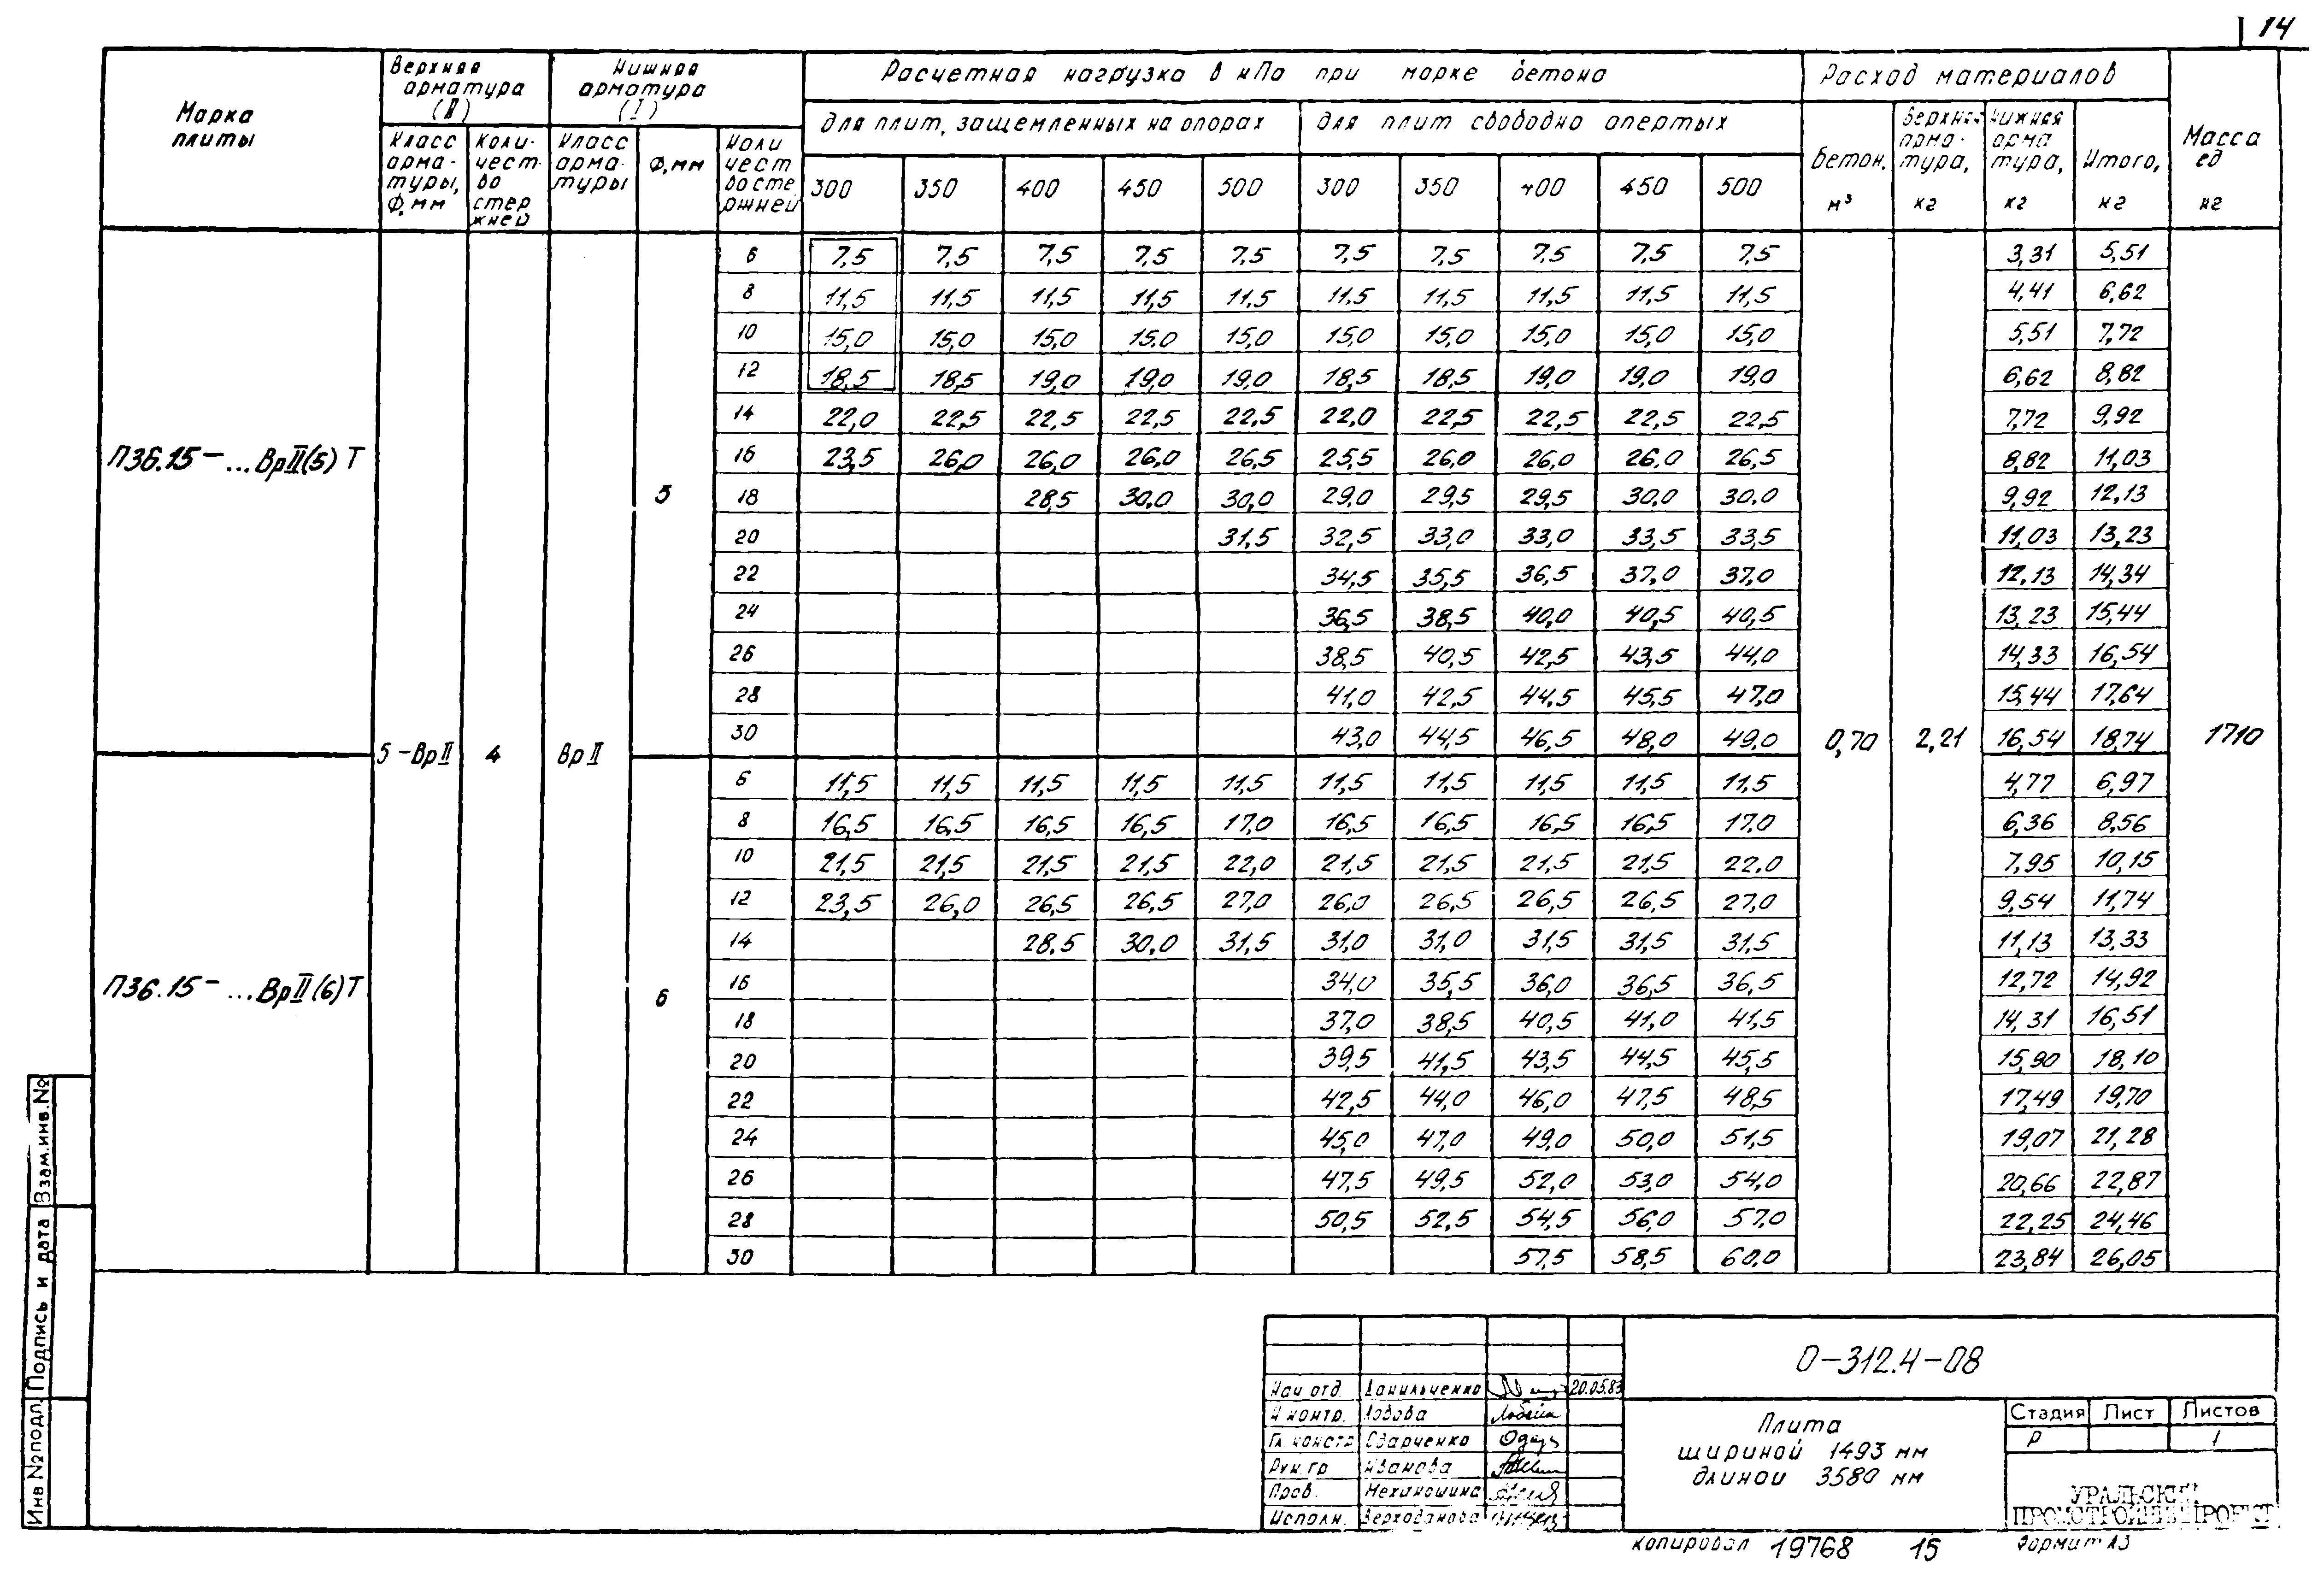 14
Марка плиты | Верхняя арматура (II) | Нижняя арматура (I) | Расчетная нагрузка в кПа при марке бетона | Расход материалов | Масса ед кг
Класс арма-туры, Ф,мм | Коли-чест-во стержней | Класс арма-туры | Ф,мм | Количество стержней | для плит, защемленных на опорах | для плит свободно опертых | Бетон, м³ | Верхняя арма-тура, кг | Нижняя арматура, кг | Итого, кг
300 | 350 | 400 | 450 | 500 | 300 | 350 | 400 | 450 | 500
П36.15-...ВрII(5)Т
5-ВрII | 4 | ВрII | 5 | 0,70 | 2,21 | 1710
6 | 7,5 | 7,5 | 7,5 | 7,5 | 7,5 | 7,5 | 7,5 | 7,5 | 7,5 | 7,5 | 3,31 | 5,51
8 | 11,5 | 11,5 | 11,5 | 11,5 | 11,5 | 11,5 | 11,5 | 11,5 | 11,5 | 11,5 | 4,41 | 6,62
10 | 15,0 | 15,0 | 15,0 | 15,0 | 15,0 | 15,0 | 15,0 | 15,0 | 15,0 | 15,0 | 5,51 | 7,72
12 | 18,5 | 18,5 | 19,0 | 19,0 | 19,0 | 18,5 | 18,5 | 19,0 | 19,0 | 19,0 | 6,62 | 8,82
14 | 22,0 | 22,5 | 22,5 | 22,5 | 22,5 | 22,0 | 22,5 | 22,5 | 22,5 | 22,5 | 7,72 | 9,92
16 | 23,5 | 26,0 | 26,0 | 26,0 | 26,5 | 25,5 | 26,0 | 26,0 | 26,0 | 26,5 | 8,82 | 11,03
18 | 28,5 | 30,0 | 30,0 | 29,0 | 29,5 | 29,5 | 30,0 | 30,0 | 9,92 | 12,13
20 | 31,5 | 32,5 | 33,0 | 33,0 | 33,5 | 33,5 | 11,03 | 13,23
22 | 34,5 | 35,5 | 36,5 | 37,0 | 37,0 | 12,13 | 14,34
24 | 36,5 | 38,5 | 40,0 | 40,5 | 40,5 | 13,23 | 15,44
26 | 38,5 | 40,5 | 42,5 | 43,5 | 44,0 | 14,33 | 16,54
28 | 41,0 | 42,5 | 44,5 | 45,5 | 47,0 | 15,44 | 17,64
30 | 43,0 | 44,5 | 46,5 | 48,0 | 49,0 | 16,54 | 18,74
П36.15-...ВрII(6)Т
6
6 | 11,5 | 11,5 | 11,5 | 11,5 | 11,5 | 11,5 | 11,5 | 11,5 | 11,5 | 11,5 | 4,77 | 6,97
8 | 16,5 | 16,5 | 16,5 | 16,5 | 17,0 | 16,5 | 16,5 | 16,5 | 16,5 | 17,0 | 6,36 | 8,56
10 | 21,5 | 21,5 | 21,5 | 21,5 | 22,0 | 21,5 | 21,5 | 21,5 | 21,5 | 22,0 | 7,95 | 10,15
12 | 23,5 | 26,0 | 26,5 | 26,5 | 27,0 | 26,0 | 26,5 | 26,5 | 26,5 | 27,0 | 9,54 | 11,74
14 | 28,5 | 30,0 | 31,5 | 31,0 | 31,0 | 31,5 | 31,5 | 31,5 | 11,13 | 13,33
16 | 34,0 | 35,5 | 36,0 | 36,5 | 36,5 | 12,72 | 14,92
18 | 37,0 | 38,5 | 40,5 | 41,0 | 41,5 | 14,31 | 16,51
20 | 39,5 | 41,5 | 43,5 | 44,5 | 45,5 | 15,90 | 18,10
22 | 42,5 | 44,0 | 46,0 | 47,5 | 48,5 | 17,49 | 19,70
24 | 45,0 | 47,0 | 49,0 | 50,0 | 51,5 | 19,07 | 21,28
26 | 47,5 | 49,5 | 52,0 | 53,0 | 54,0 | 20,66 | 22,87
28 | 50,5 | 52,5 | 54,5 | 56,0 | 57,0 | 22,25 | 24,46
30 | 57,5 | 58,5 | 60,0 | 23,84 | 26,05
Взам.инв.№
Подпись и дата
Инв №подл.
О-312.4-08
Нач отд | Данильченко | 20.05.83
Н контр. | Лобова
Гл. констр | Одарченко
Рук. гр | Иванова
Пров. | Механошина
Исполн. | Верходанова
Плита
шириной 1493 мм
длиной 3580 мм
Стадия | Лист | Листов
Р | 1
УРАЛЬСКИЙ
ПРОМСТРОЙНИИПРОЕКТ
Копировал 19768 15 Формат А3